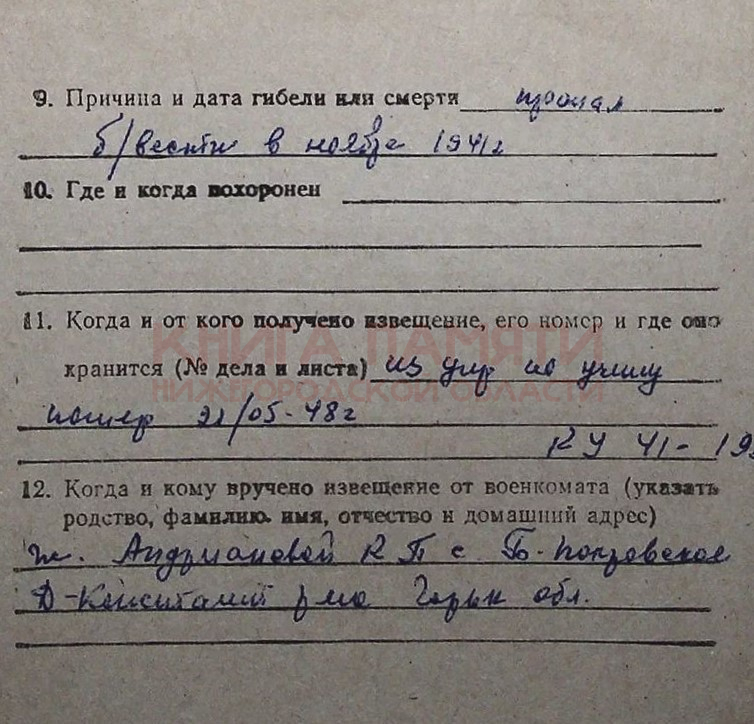 9. Причина и дата гибели или смерти пропал
б/вести в ноябре 1941г
10. Где и когда похоронен
11. Когда и от кого получено извещение, его номер и где оно
КНИГА ПАМЯТИ
хранится (№ дела и листа) из упр по учету
НИЖЕГОРОДСКОЙ ОБЛАСТИ
потерь 21/05-48г
КУ 41-19
12. Когда и кому вручено извещение от военкомата (указать
родство, фамилию, имя, отчество и домашний адрес)
ж. Андриановой К П с Б-Покровское
Д-Константин р-на Горьк обл.